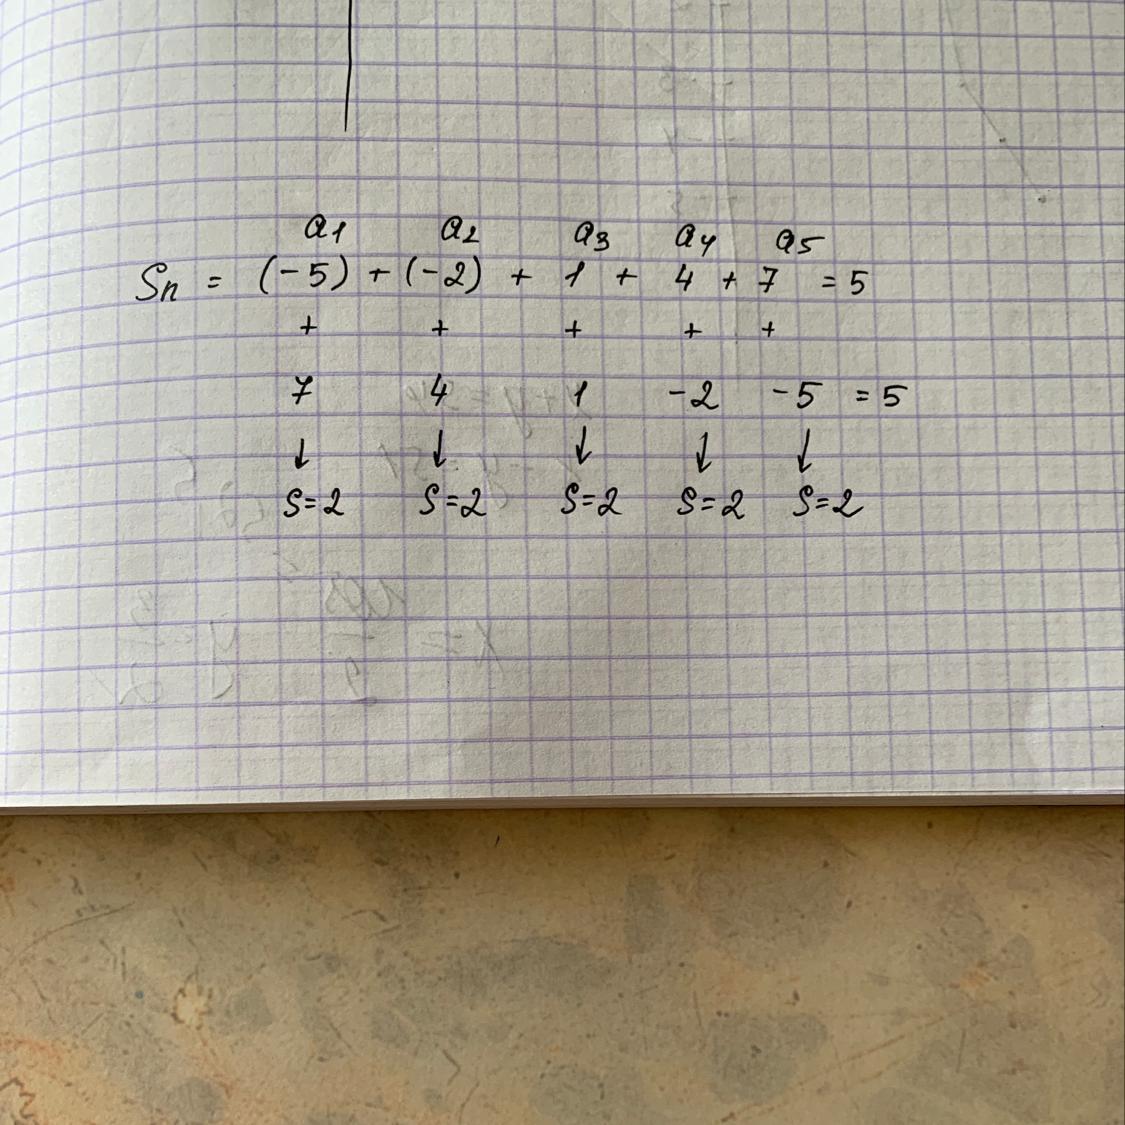 a1 a2 a3 a4 a5
Sn = (-5) + (-2) + 1 + 4 + 7 = 5
+ + + + +
7 4 1 -2 -5 = 5
↓ ↓ ↓ ↓ ↓
S=2 S=2 S=2 S=2 S=2